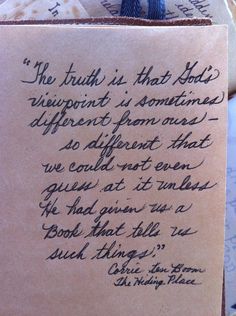 "The truth is that God's
viewpoint is sometimes
different from ours –
so different that
we could not even
guess at it unless
He had given us a
Book that tells us
such things."
Corrie ten Boom
The Hiding Place